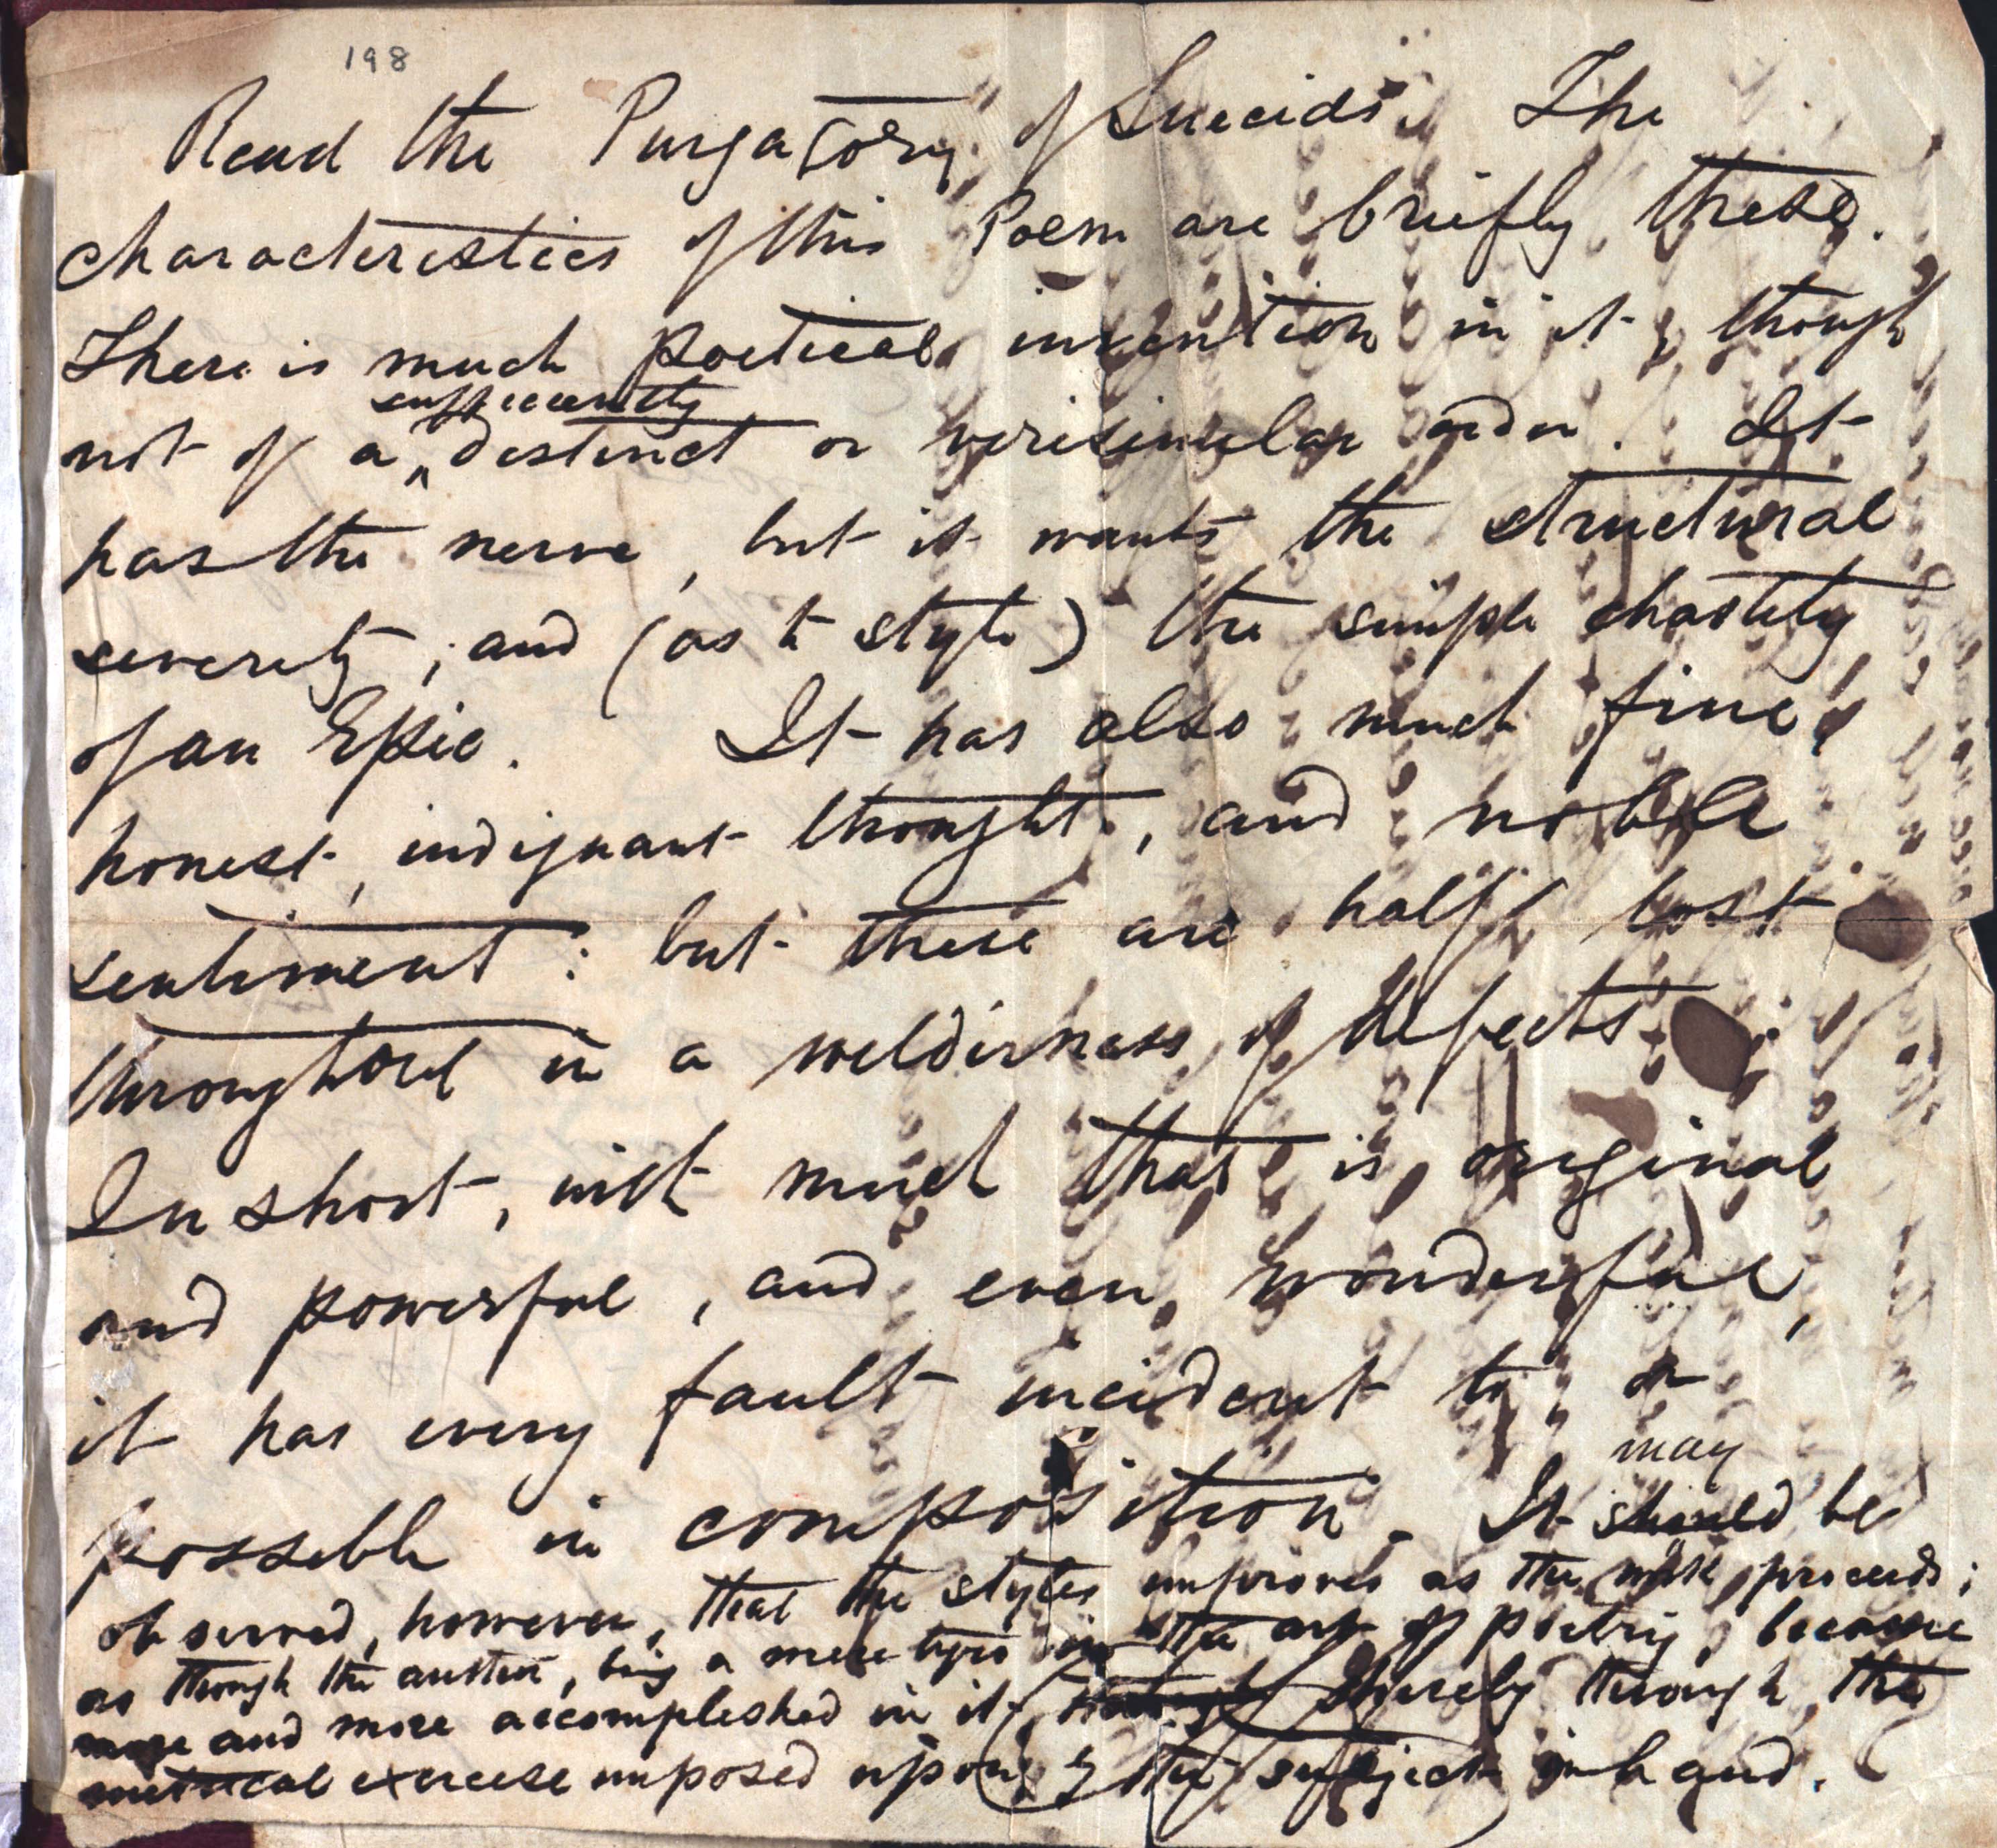 198
Read the Purgatory of Suicids. The
characteristics of this Poem are briefly these.
There is much poetical invention in it, though
sufficiently
not of a ^ distinct or verisimular order. It
has the nerve, but it wants the structural
severity; and (as to style) the simple chastity
of an Epic. It has also much fine,
honest, indignant thought, and noble
sentiment: but these are half lost
throughout in a wilderness of defects.
In short, with much that is original
and powerful, and even wonderful,
it has every fault incident to, or
may
possible in composition. It should be
observed, however, that the style improves as the work proceeds;
as though the author, being a mere tyro in the art of poetry, became
more and more accomplished in it, merely through the
metrical exercise imposed upon by the subject in hand.